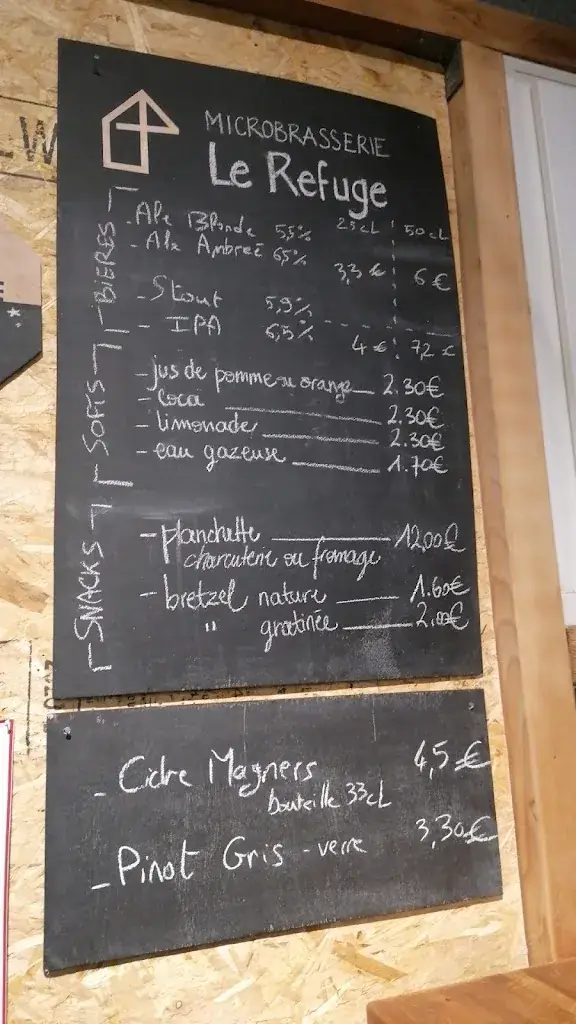 MICROBRASSERIE
Le Refuge
BIÈRES
25cL 50cL
- Ale Blonde 5,5%
- Ale Ambreé 6,5%
3,3€ 6€
- Stout 5,9%
- IPA 6,5%
4€ 7,2€
SOFTS
- jus de pomme ou orange 2.30€
- coca 2.30€
- limonade 2.30€
- eau gazeuse 1.70€
SNACKS
- planchette 12,00€
charcuterie ou fromage
- bretzel nature 1.60€
" gratinée 2,00€
- Cidre Magners 4,5€
bouteille 33cL
- Pinot Gris - verre 3,30€